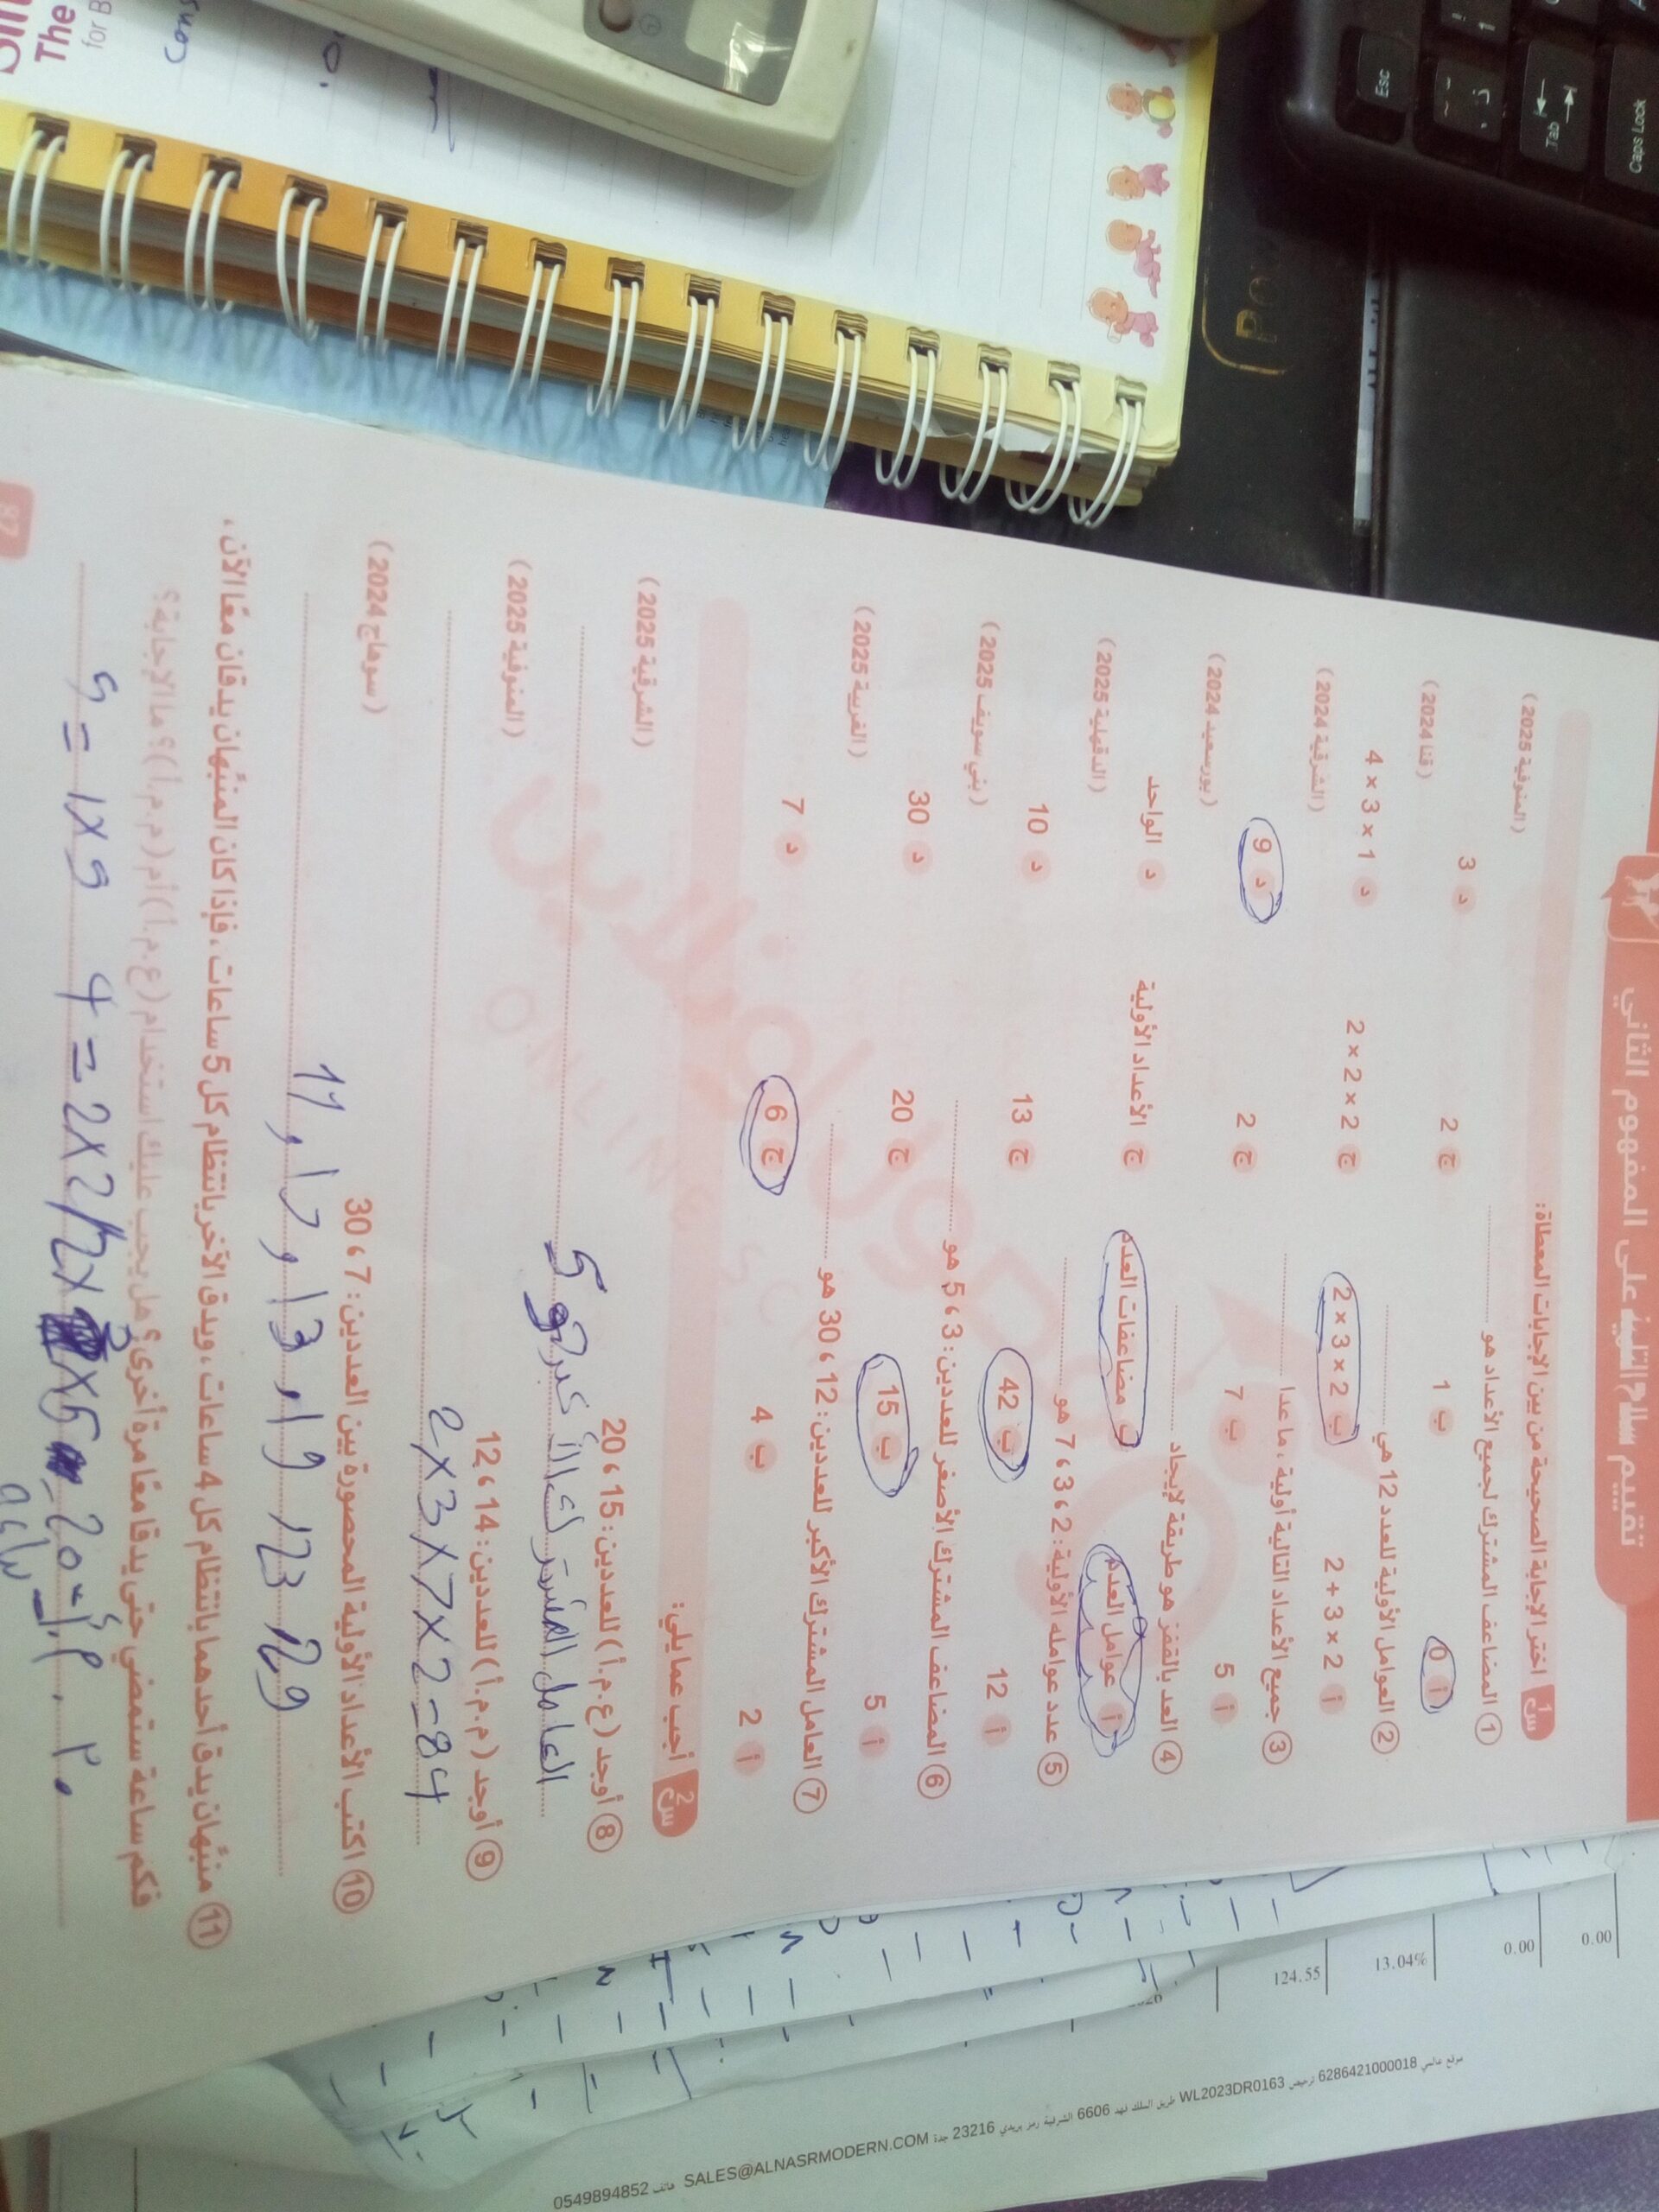 تقييم سلاح التلميذ على المفهوم الثاني
س1 اختر الإجابة الصحيحة من بين الإجابات المعطاة:
1 المضاعف المشترك لجميع الأعداد هو (المنوفية 2025)
أ 0 ب 1 ج 2 د 3
2 العوامل الأولية للعدد 12 هي (قنا 2024)
أ 2 + 3 × 2 ب 2 × 3 × 2 ج 2 × 2 × 2 د 4 × 3 × 1
3 جميع الأعداد التالية أولية، ما عدا (الشرقية 2024)
أ 5 ب 7 ج 2 د 9
4 العد بالقفز هو طريقة لإيجاد (بورسعيد 2024)
أ عوامل العدد ب مضاعفات العدد ج الأعداد الأولية د الواحد
5 عدد عوامله الأولية: 2، 3، 7 هو (الدقهلية 2025)
أ 12 ب 42 ج 13 د 10
6 المضاعف المشترك الأصغر للعددين: 3، 5 هو (بني سويف 2025)
أ 5 ب 15 ج 20 د 30
7 العامل المشترك الأكبر للعددين: 12، 30 هو (الغربية 2025)
أ 2 ب 4 ج 6 د 7
س2 أجب عما يلي:
8 أوجد (ع.م.أ) للعددين: 15، 20 (الشرقية 2025)
العامل المشترك الأكبر هو 5
9 أوجد (م.م.أ) للعددين: 14، 12 (المنوفية 2025)
2 x 3 x 7 x 2 = 84
10 اكتب الأعداد الأولية المحصورة بين العددين: 7، 30 (سوهاج 2024)
11 , 13 , 19 23 29
11 منبّهان يدق أحدهما بانتظام كل 4 ساعات، ويدق الآخر بانتظام كل 5 ساعات، فإذا كان المنبّهان يدقان معًا الآن،
فكم ساعة ستمضي حتى يدقا معًا مرة أخرى؟ هل يجب عليك استخدام (ع.م.أ) أم (م.م.أ)؟ ما الإجابة؟
5 = 1 x 5 4 = 2 x 2 2 x x 5 = 20 = م.م.أ
ساعة
87
Esc
Tab
Caps Lock
The
for B
0.00
0.00
13.04%
124.55
موقع عالمي 6286421000018 ترخيص WL2023DR0163 طريق الملك فهد 6606 الشرفية رمز بريدي 23216 جدة SALES@ALNASRMODERN.COM هاتف 0549894852